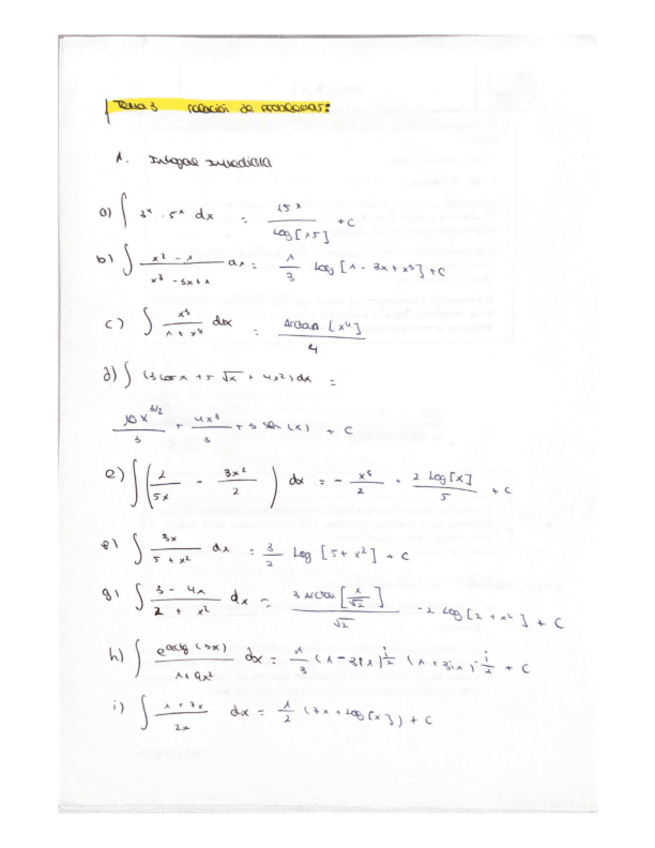 Tema 3 relación de problemas:
1. Integral inmediata
a) ∫ 3^x · 5^x dx = 15^x / Log[15] + C
b) ∫ (x² - 1) / (x³ - 3x + 1) dx = 1/3 Log [1 - 3x + x³] + C
c) ∫ x³ / (1 + x⁸) dx = Arctan [x⁴] / 4
d) ∫ (3 cos x + 5 √x + 4x²) dx =
10x^(3/2) / 3 + 4x³ / 3 + 3 sen (x) + C
e) ∫ (2 / 5x - 3x² / 2) dx = - x³ / 2 + 2 Log[x] / 5 + C
∫ 3x / (5 + x²) dx = 3/2 Log [5 + x²] + C
g) ∫ (3 - 4x) / (2 + x²) dx = 3 Arctan [x / √2] / √2 - 2 Log [2 + x²] + C
h) ∫ e^(arctg (3x)) / (1 + 9x²) dx = 1/3 (1 - 3ix)^(i/2) (1 + 3ix)^(-i/2) + C
i) ∫ (1 + 7x) / 2x dx = 1/2 (7x + Log[x]) + C